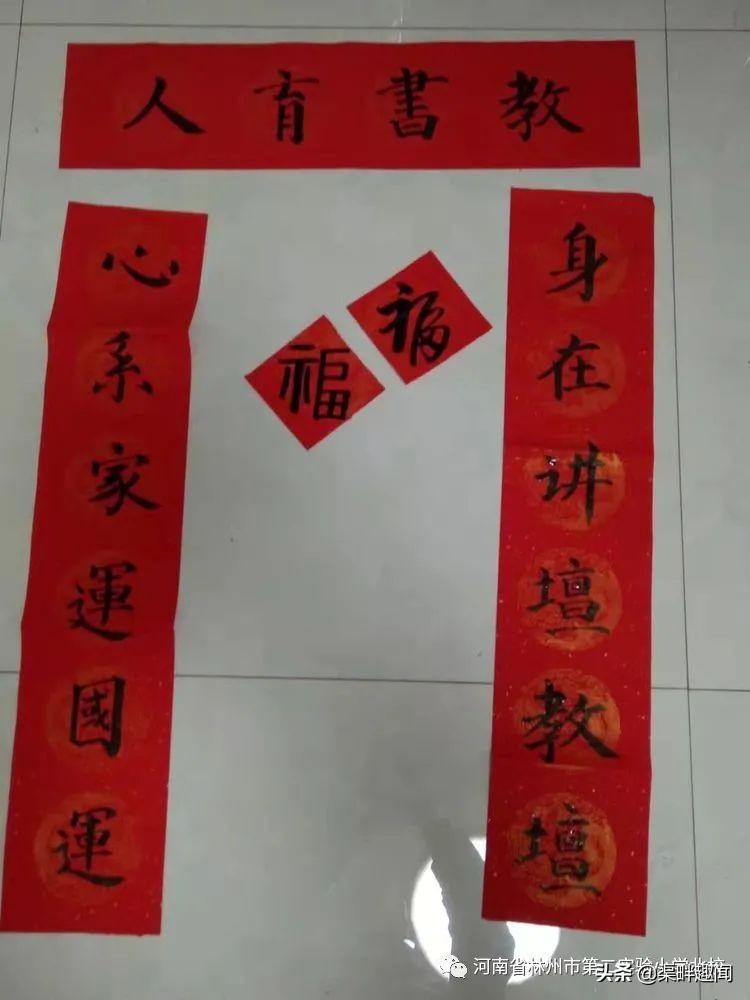 教書育人
身在讲壇教壇
心系家運國運
福
福
河南省林州市第二实验小学北校
头条 @渠畔趣闻